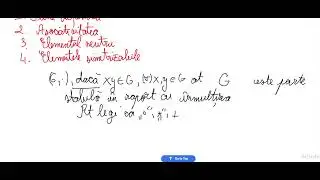 2. Asociativitatea
3. Elementul neutru
4. Elementele simetrizabile
(G, ·), dacă x,y∈G, (∀)x,y∈G at G este parte
stabilă în raport cu înmulțirea
Pt legi ca „o",